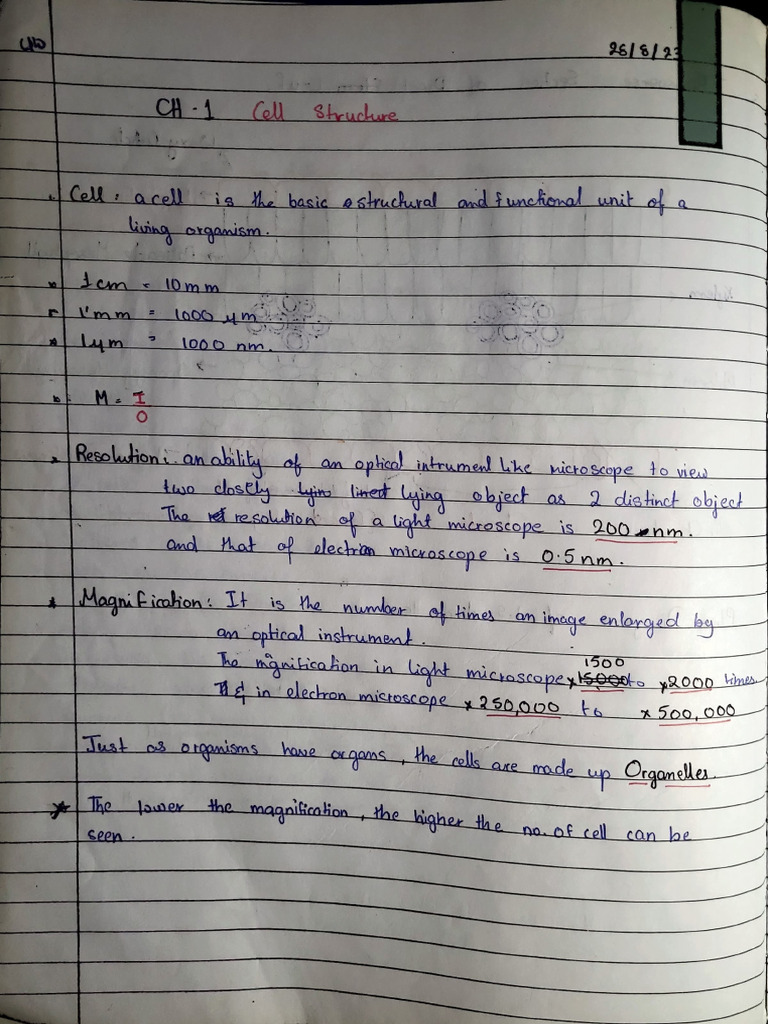 26/8/23
CH - 1 Cell Structure
Cell : a cell is the basic structural and functional unit of a
living organism.
1 cm = 10 mm
1 mm = 1000 μm
1 μm = 1000 nm.
M = I
O
Resolution : an ability of an optical intrument like microscope to view
two closely lying object as 2 distinct object
The resolution of a light microscope is 200 nm.
and that of electron microscope is 0.5 nm.
Magnification : It is the number of times an image enlarged by
an optical instrument.
1500
The magnitication in light microscope x 15000 to x 2000 times
& in electron microscope x 250,000 to x 500,000
Just as organisms have organs, the cells are made up Organelles.
The lower the magnification, the higher the no. of cell can be
seen.